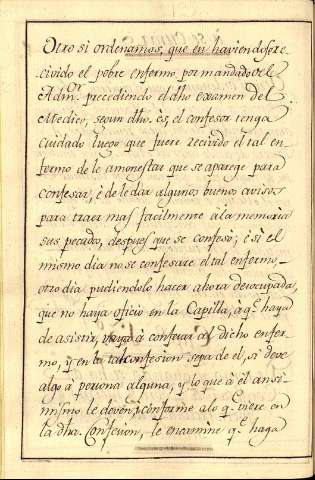 Otro si ordenamos, que en haviendose re
civido el pobre enfermo, por mandado del
Admor. precediendo el dho examen del
Medico, segun dho. es, el confesor tenga
cuidado luego que fuere recivido el tal en
fermo de le amonestar que se apareje para
confesar, è de le dar algunos buenos avisos
para traer mas facilmente à la memoria
sus pecados, despues que se confesò; è si el
mismo dia no se confesare el tal enfermo,
otro dia pudiendolo hacer ahora devocupada,
que no haya oficio en la Capilla, à q.e haya
de asistir, vaya à confesar al dicho enfer-
mo, y en la tal confesion sepa de el, si deve
algo à persona alguna, y lo que à èl ansi-
mismo le deven; y conforme à lo q.e viere en
la dha. Confesion, le encamine q.e haga